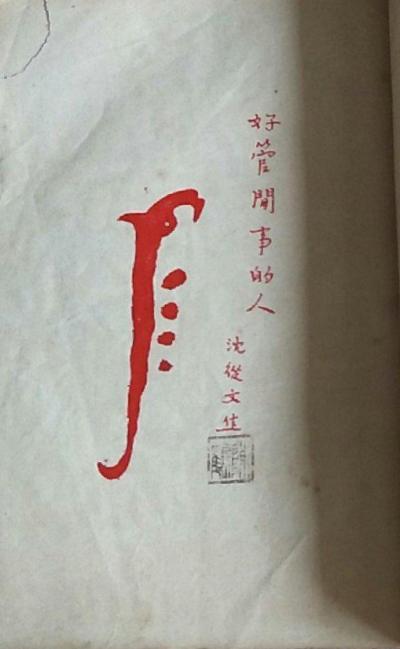 好管閒事的人
沈從文作